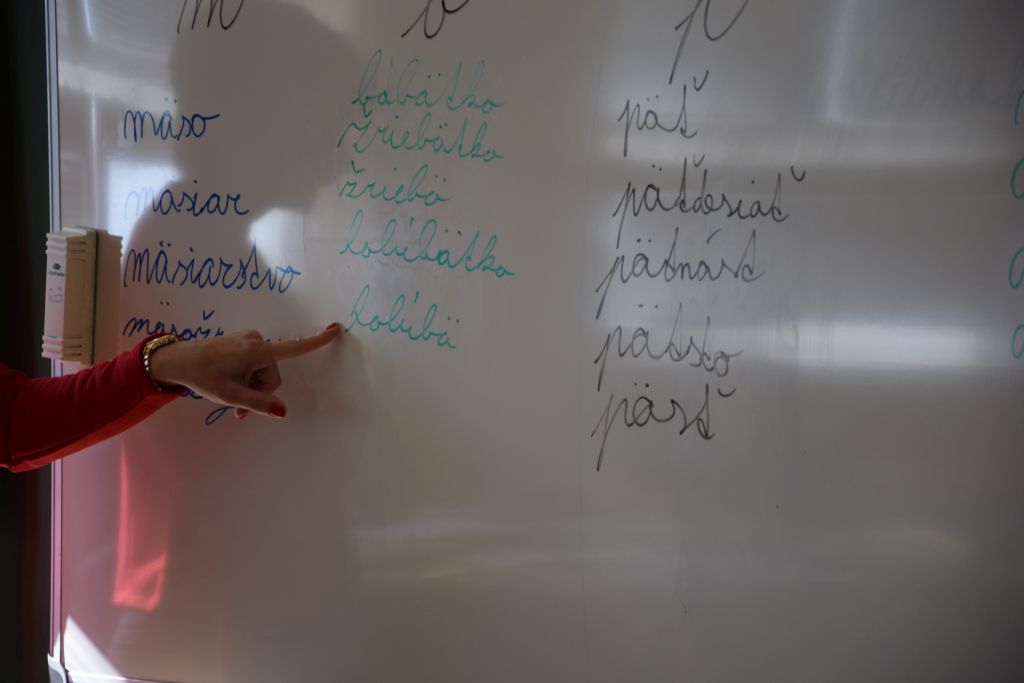 m
mäso
mäsiar
mäsiarstvo
b
bábätko
žriebätko
žriebä
holúbätko
holúbä
p
päť
päťdesiať
pätnást
pätsto
päsť